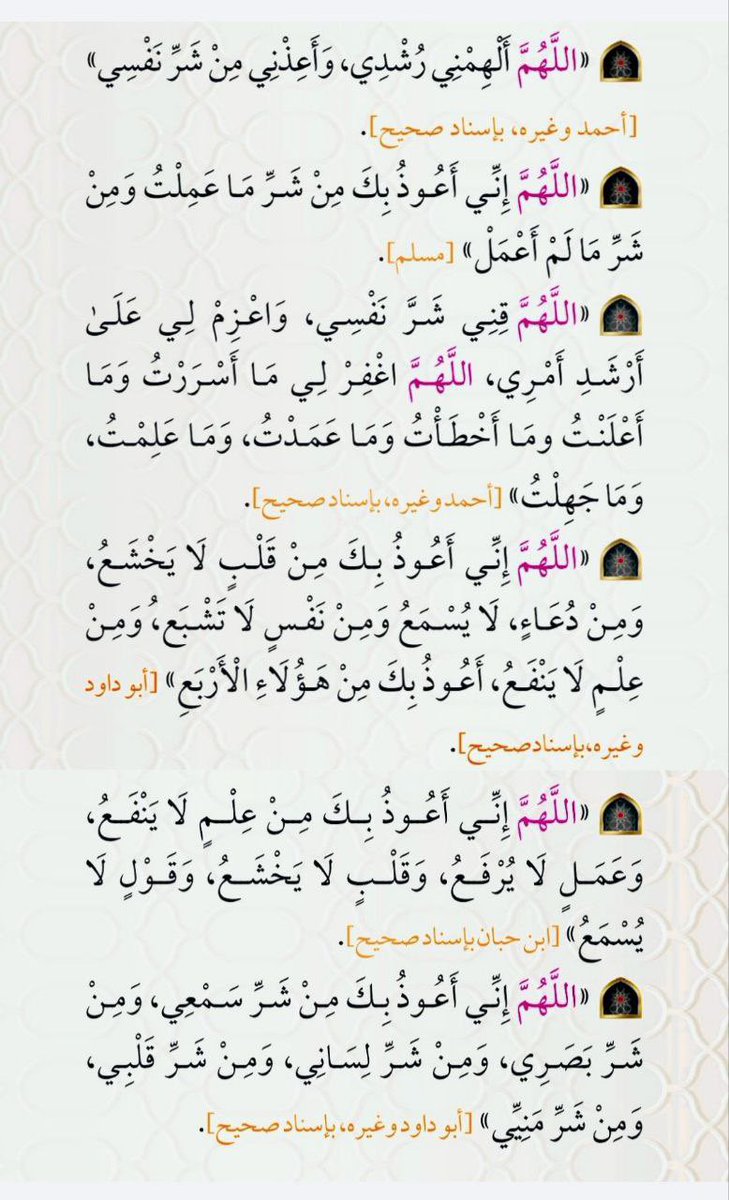 «اللَّهُمَّ أَلْهِمْنِي رُشْدِي، وَأَعِذْنِي مِنْ شَرِّ نَفْسِي»
[أحمد وغيره، بإسناد صحيح].
«اللَّهُمَّ إِنِّي أَعُوذُ بِكَ مِنْ شَرِّ مَا عَمِلْتُ وَمِنْ
شَرِّ مَا لَمْ أَعْمَلْ» [مسلم].
«اللَّهُمَّ قِنِي شَرَّ نَفْسِي، وَاعْزِمْ لِي عَلَىٰ
أَرْشَدِ أَمْرِي، اللَّهُمَّ اغْفِرْ لِي مَا أَسْرَرْتُ وَمَا
أَعْلَنْتُ ومَا أَخْطَأْتُ وَمَا عَمَدْتُ، وَمَا عَلِمْتُ،
وَمَا جَهِلْتُ» [أحمد وغيره، بإسناد صحيح].
«اللَّهُمَّ إِنِّي أَعُوذُ بِكَ مِنْ قَلْبٍ لَا يَخْشَعُ،
وَمِنْ دُعَاءٍ، لَا يُسْمَعُ وَمِنْ نَفْسٍ لَا تَشْبَع،ُ وَمِنْ
عِلْمٍ لَا يَنْفَعُ، أَعُوذُ بِكَ مِنْ هَؤُلَاءِ الْأَرْبَعِ» [أبو داود
وغيره، بإسناد صحيح].
«اللَّهُمَّ إِنِّي أَعُوذُ بِكَ مِنْ عِلْمٍ لَا يَنْفَعُ،
وَعَمَلٍ لَا يُرْفَعُ، وَقَلْبٍ لَا يَخْشَعُ، وَقَوْلٍ لَا
يُسْمَعُ» [ابن حبان بإسناد صحيح].
«اللَّهُمَّ إِنِّي أَعُوذُ بِكَ مِنْ شَرِّ سَمْعِي، وَمِنْ
شَرِّ بَصَرِي، وَمِنْ شَرِّ لِسَانِي، وَمِنْ شَرِّ قَلْبِي،
وَمِنْ شَرِّ مَنِيِّي» [أبو داود وغيره، بإسناد صحيح].